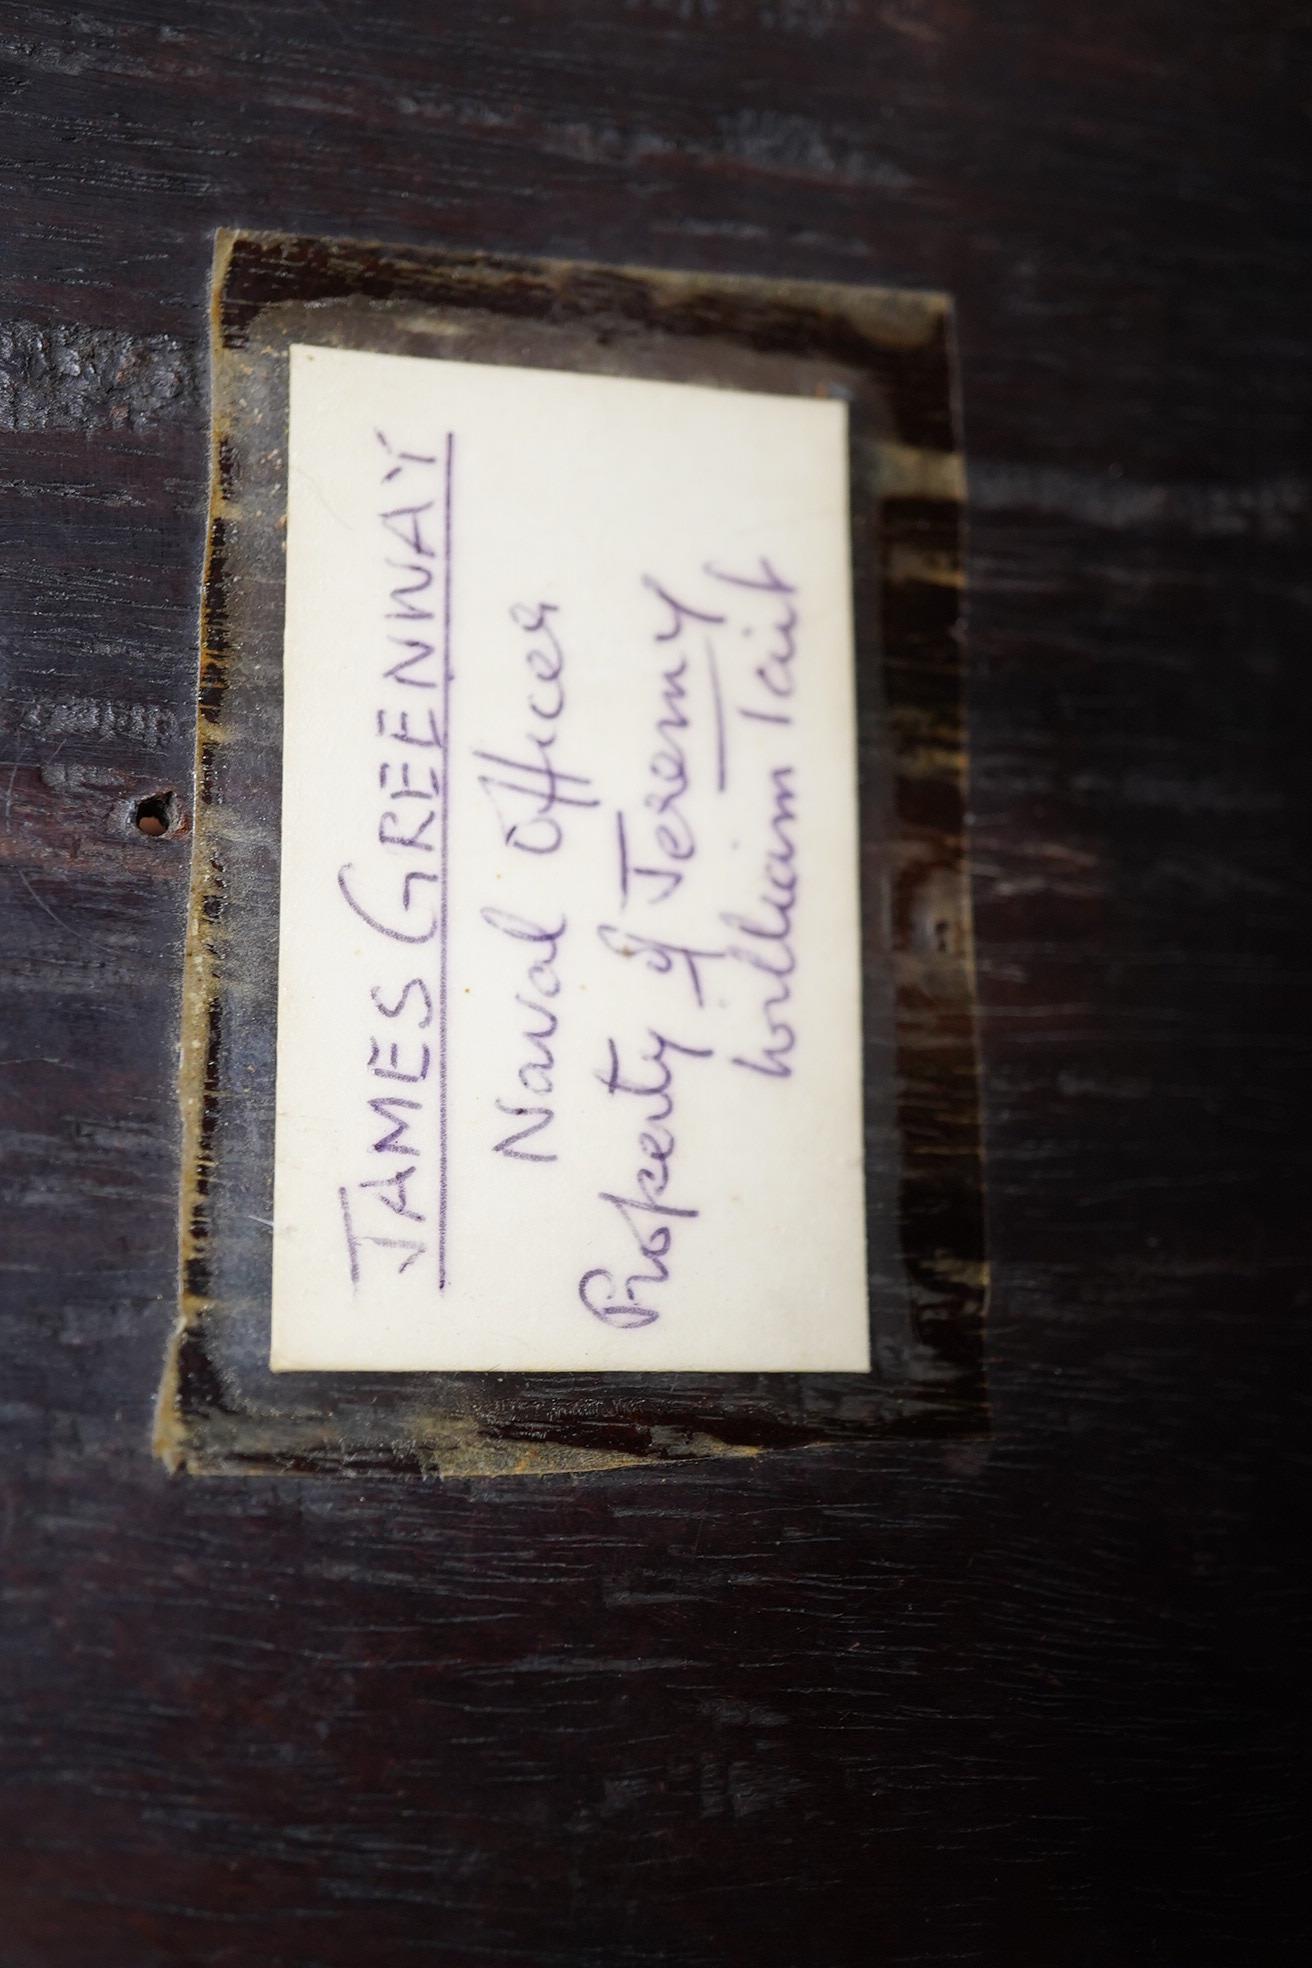 JAMES GREENWAY
Naval Officer
Property of Jeremy
William Tait